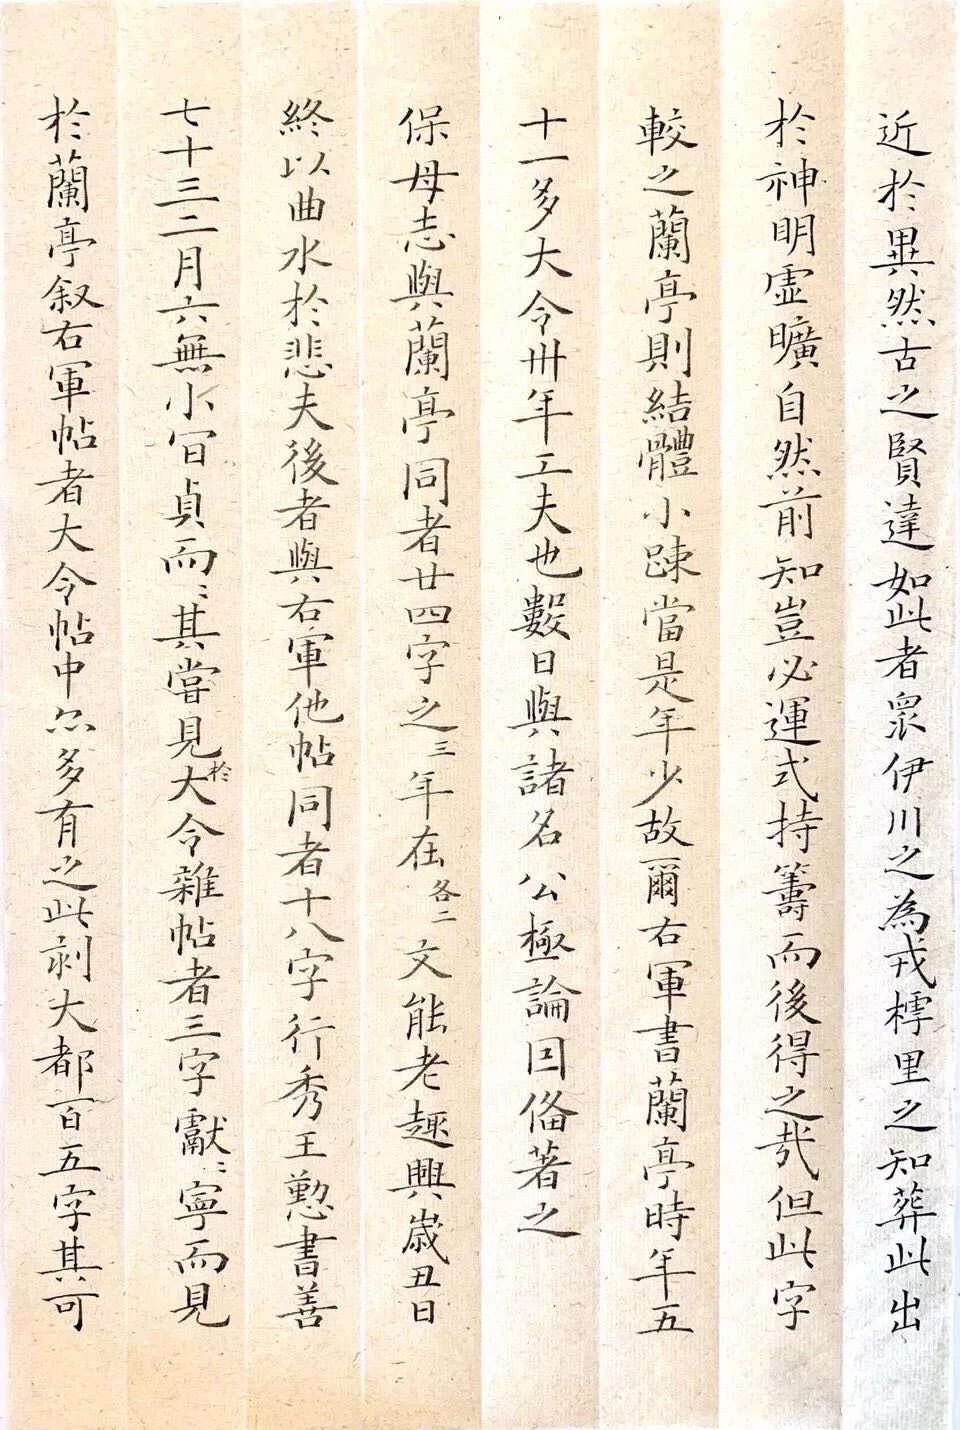 近於異然古之賢達如此者眾伊川之為戎樗里之知葬此出
於神明虛曠自然前知豈必運式持籌而後得之哉但此字
較之蘭亭則結體小疎當是年少故爾右軍書蘭亭時年五
十一多大令卅年工夫也數日與諸名公極論因俻著之
保母志與蘭亭同者廿四字之三年在各二文能老趣興歲丑日
終以曲水於悲夫後者與右軍他帖同者十八字行秀王懃書善
七十三二月六無小官貞而〻其嘗見於大令雜帖者三字獻〻寧而見
於蘭亭叙右軍帖者大令帖中亦多有之此剥大都百五字其可